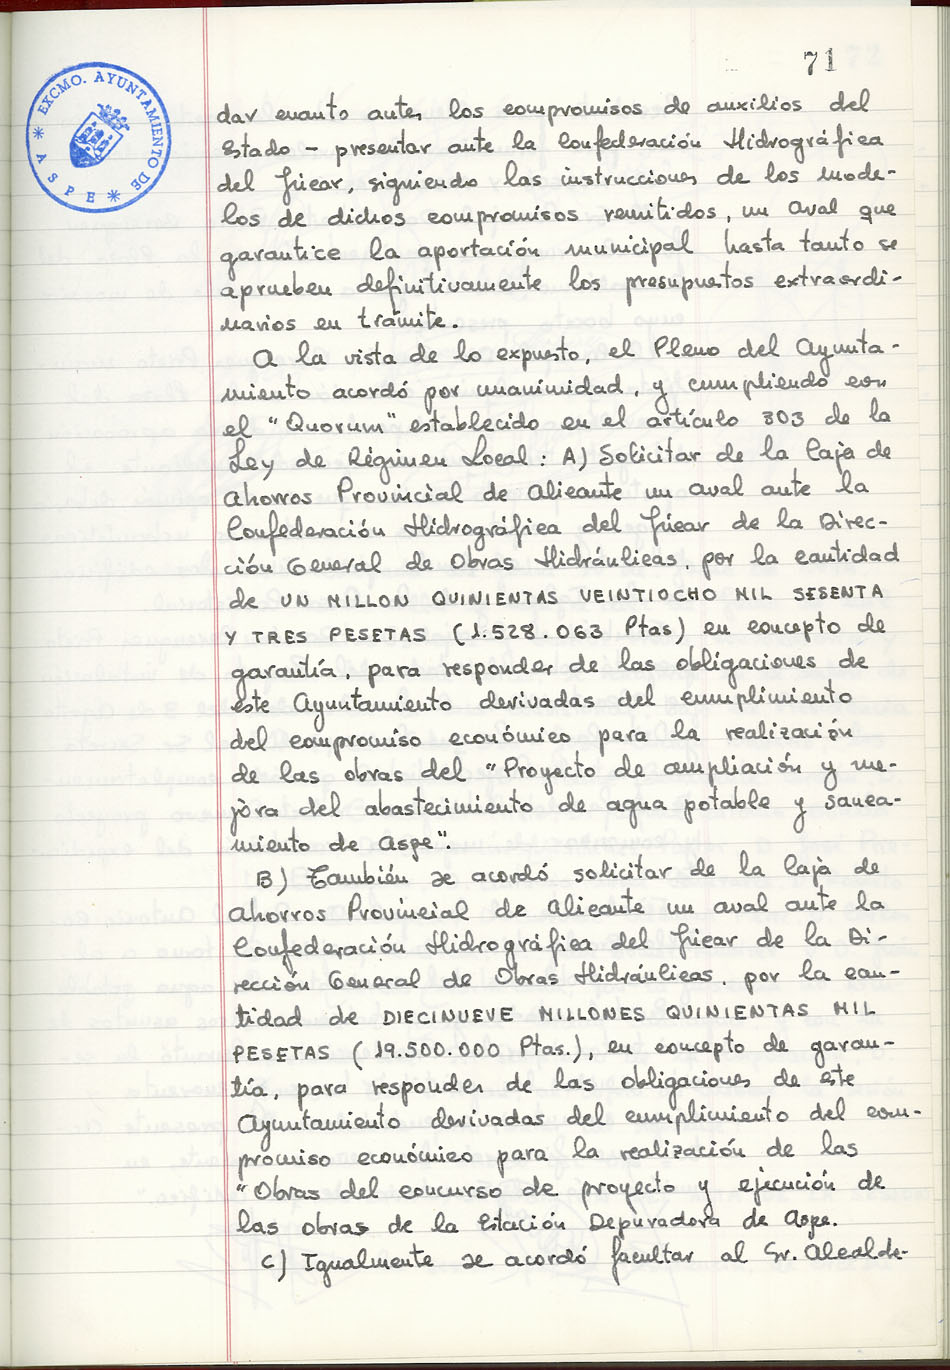 71
EXCMO. AYUNTAMIENTO DE
ASPE
dar cuanto antes los compromisos de auxilios del
Estado - presentar ante la Confederación Hidrográfica
del Júcar, siguiendo las instrucciones de los mode-
los de dichos compromisos remitidos, un aval que
garantice la aportación municipal hasta tanto se
aprueben definitivamente los presupuestos extraordi-
narios en trámite.
A la vista de lo expuesto, el Pleno del Ayunta-
miento acordó por unanimidad, y cumpliendo con
el "Quorum" establecido en el artículo 303 de la
Ley de Régimen Local: A) Solicitar de la Caja de
Ahorros Provincial de Alicante un aval ante la
Confederación Hidrográfica del Júcar de la Direc-
ción General de Obras Hidráulicas, por la cantidad
de UN MILLON QUINIENTAS VEINTIOCHO MIL SESENTA
Y TRES PESETAS (1.528.063 Ptas) en concepto de
garantía, para responder de las obligaciones de
este Ayuntamiento derivadas del cumplimiento
del compromiso económico para la realización
de las obras del "Proyecto de ampliación y me-
jora del abastecimiento de agua potable y sanea-
miento de Aspe".
B) También se acordó solicitar de la Caja de
Ahorros Provincial de Alicante un aval ante la
Confederación Hidrográfica del Júcar de la Di-
rección General de Obras Hidráulicas, por la can-
tidad de DIECINUEVE MILLONES QUINIENTAS MIL
PESETAS (19.500.000 Ptas.), en concepto de garan-
tía, para responder de las obligaciones de este
Ayuntamiento derivadas del cumplimiento del com-
promiso económico para la realización de las
"Obras del concurso de proyecto y ejecución de
las obras de la Estación Depuradora de Aspe.
C) Igualmente se acordó facultar al Sr. Alcalde-